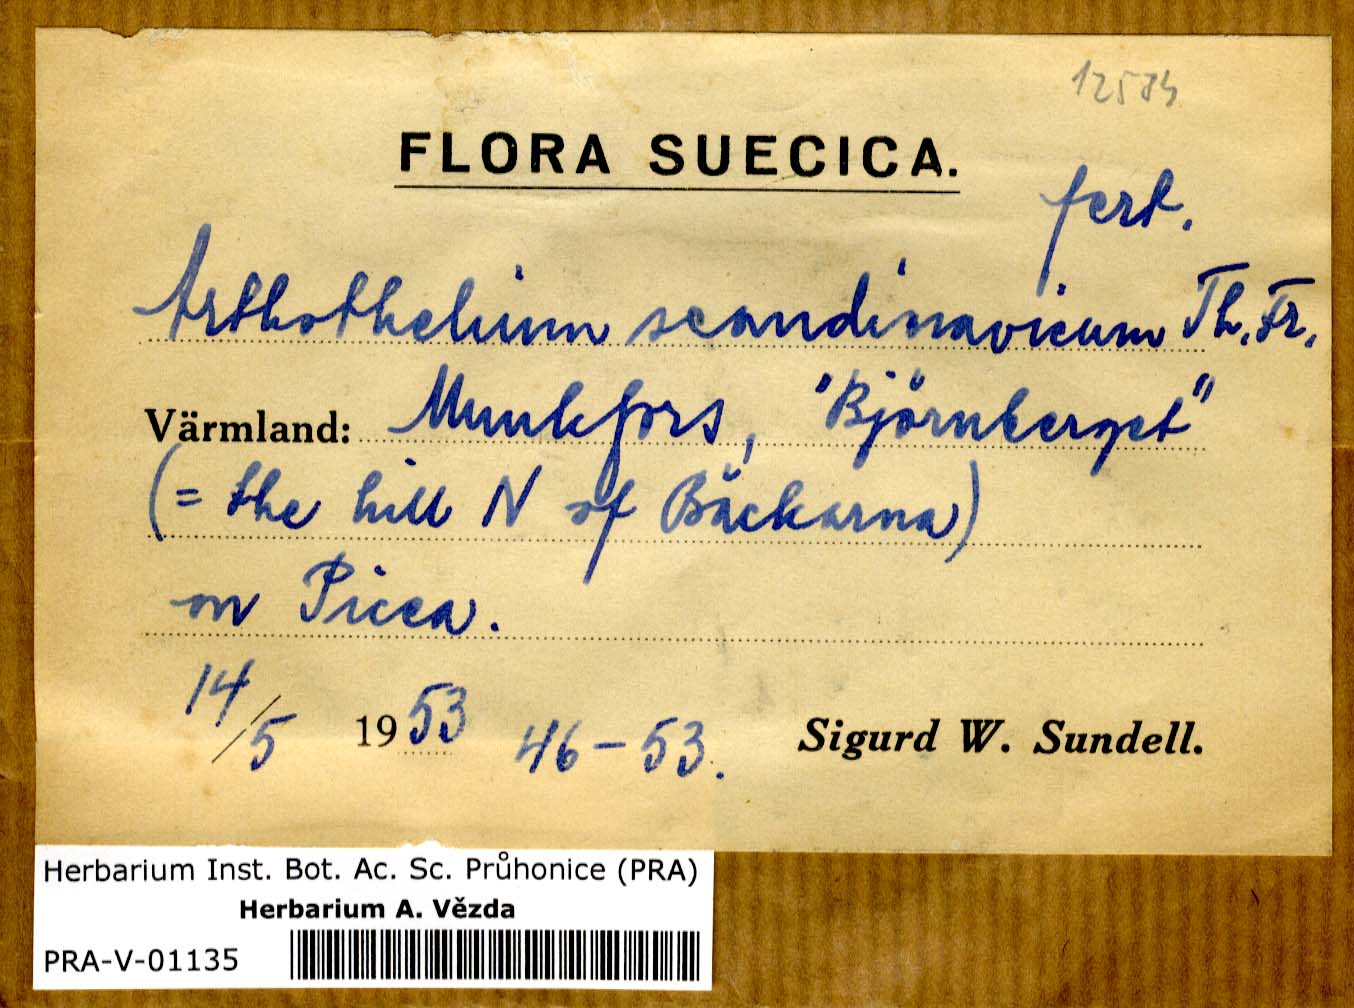 FLORA SUECICA.
fert.
Arthothelium scandinavicum Th. Fr.
Värmland: Munkfors, "Björnberget"
(= the hill N of Bäckarna)
on Picea.
14/5 1953 46-53. Sigurd W. Sundell.
Herbarium Inst. Bot. Ac. Sc. Průhonice (PRA)
Herbarium A. Vězda
PRA-V-01135